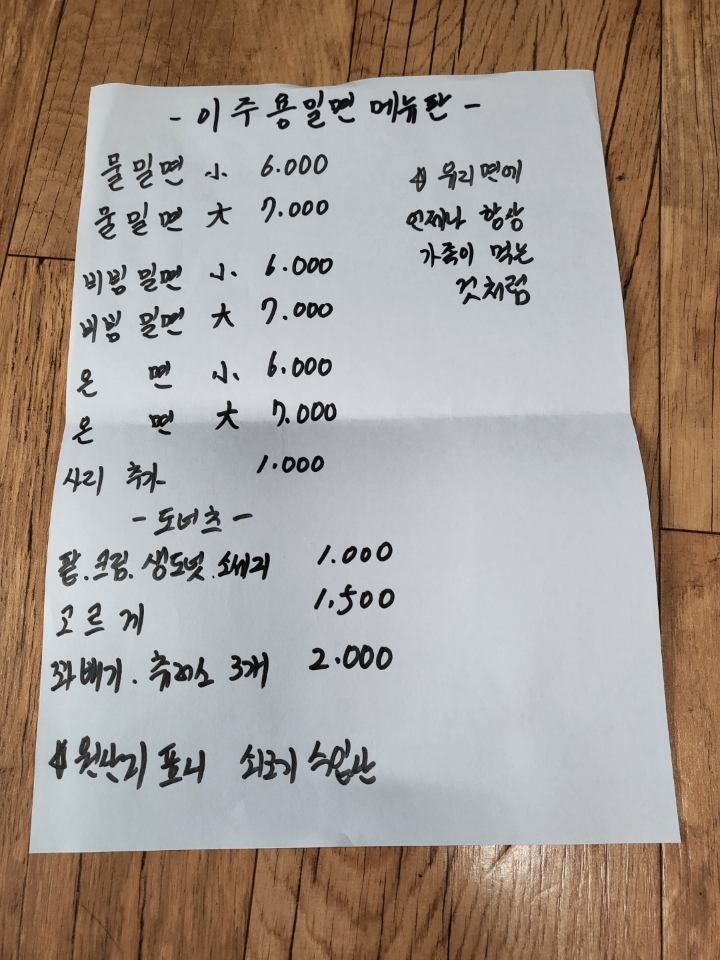 - 이주용밀면 메뉴판 -
물밀면 小 6.000
물밀면 大 7.000
비빔밀면 小 6.000
비빔밀면 大 7.000
온 면 小 6.000
온 면 大 7.000
사리 추가 1.000
- 도너츠 -
팥.크림.생도넛.소세지 1.000
고르게 1.500
꽈배기. 츄러스 3개 2.000
원산지 표시 쇠고기 수입산
우리면에
언제나 항상
가족이 먹는
것처럼